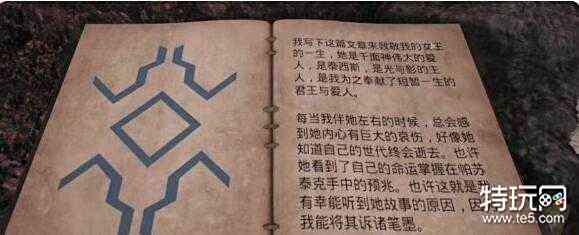 我写下这篇文章来致敬我的女王
的一生，她是千面神伟大的爱
人，是泰西斯，是光与影的主
人，是我为之奉献了短暂一生的
君王与爱人。
每当我伴她左右的时候，总会感
到她内心有巨大的哀伤，好像她
知道自己的世代终会逝去。也许
她看到了自己的命运掌握在帕苏
泰克手中的预兆。也许这就是我
有幸能听到她故事的原因，因
我能将其诉诸笔墨。
特玩网
www.te5.com